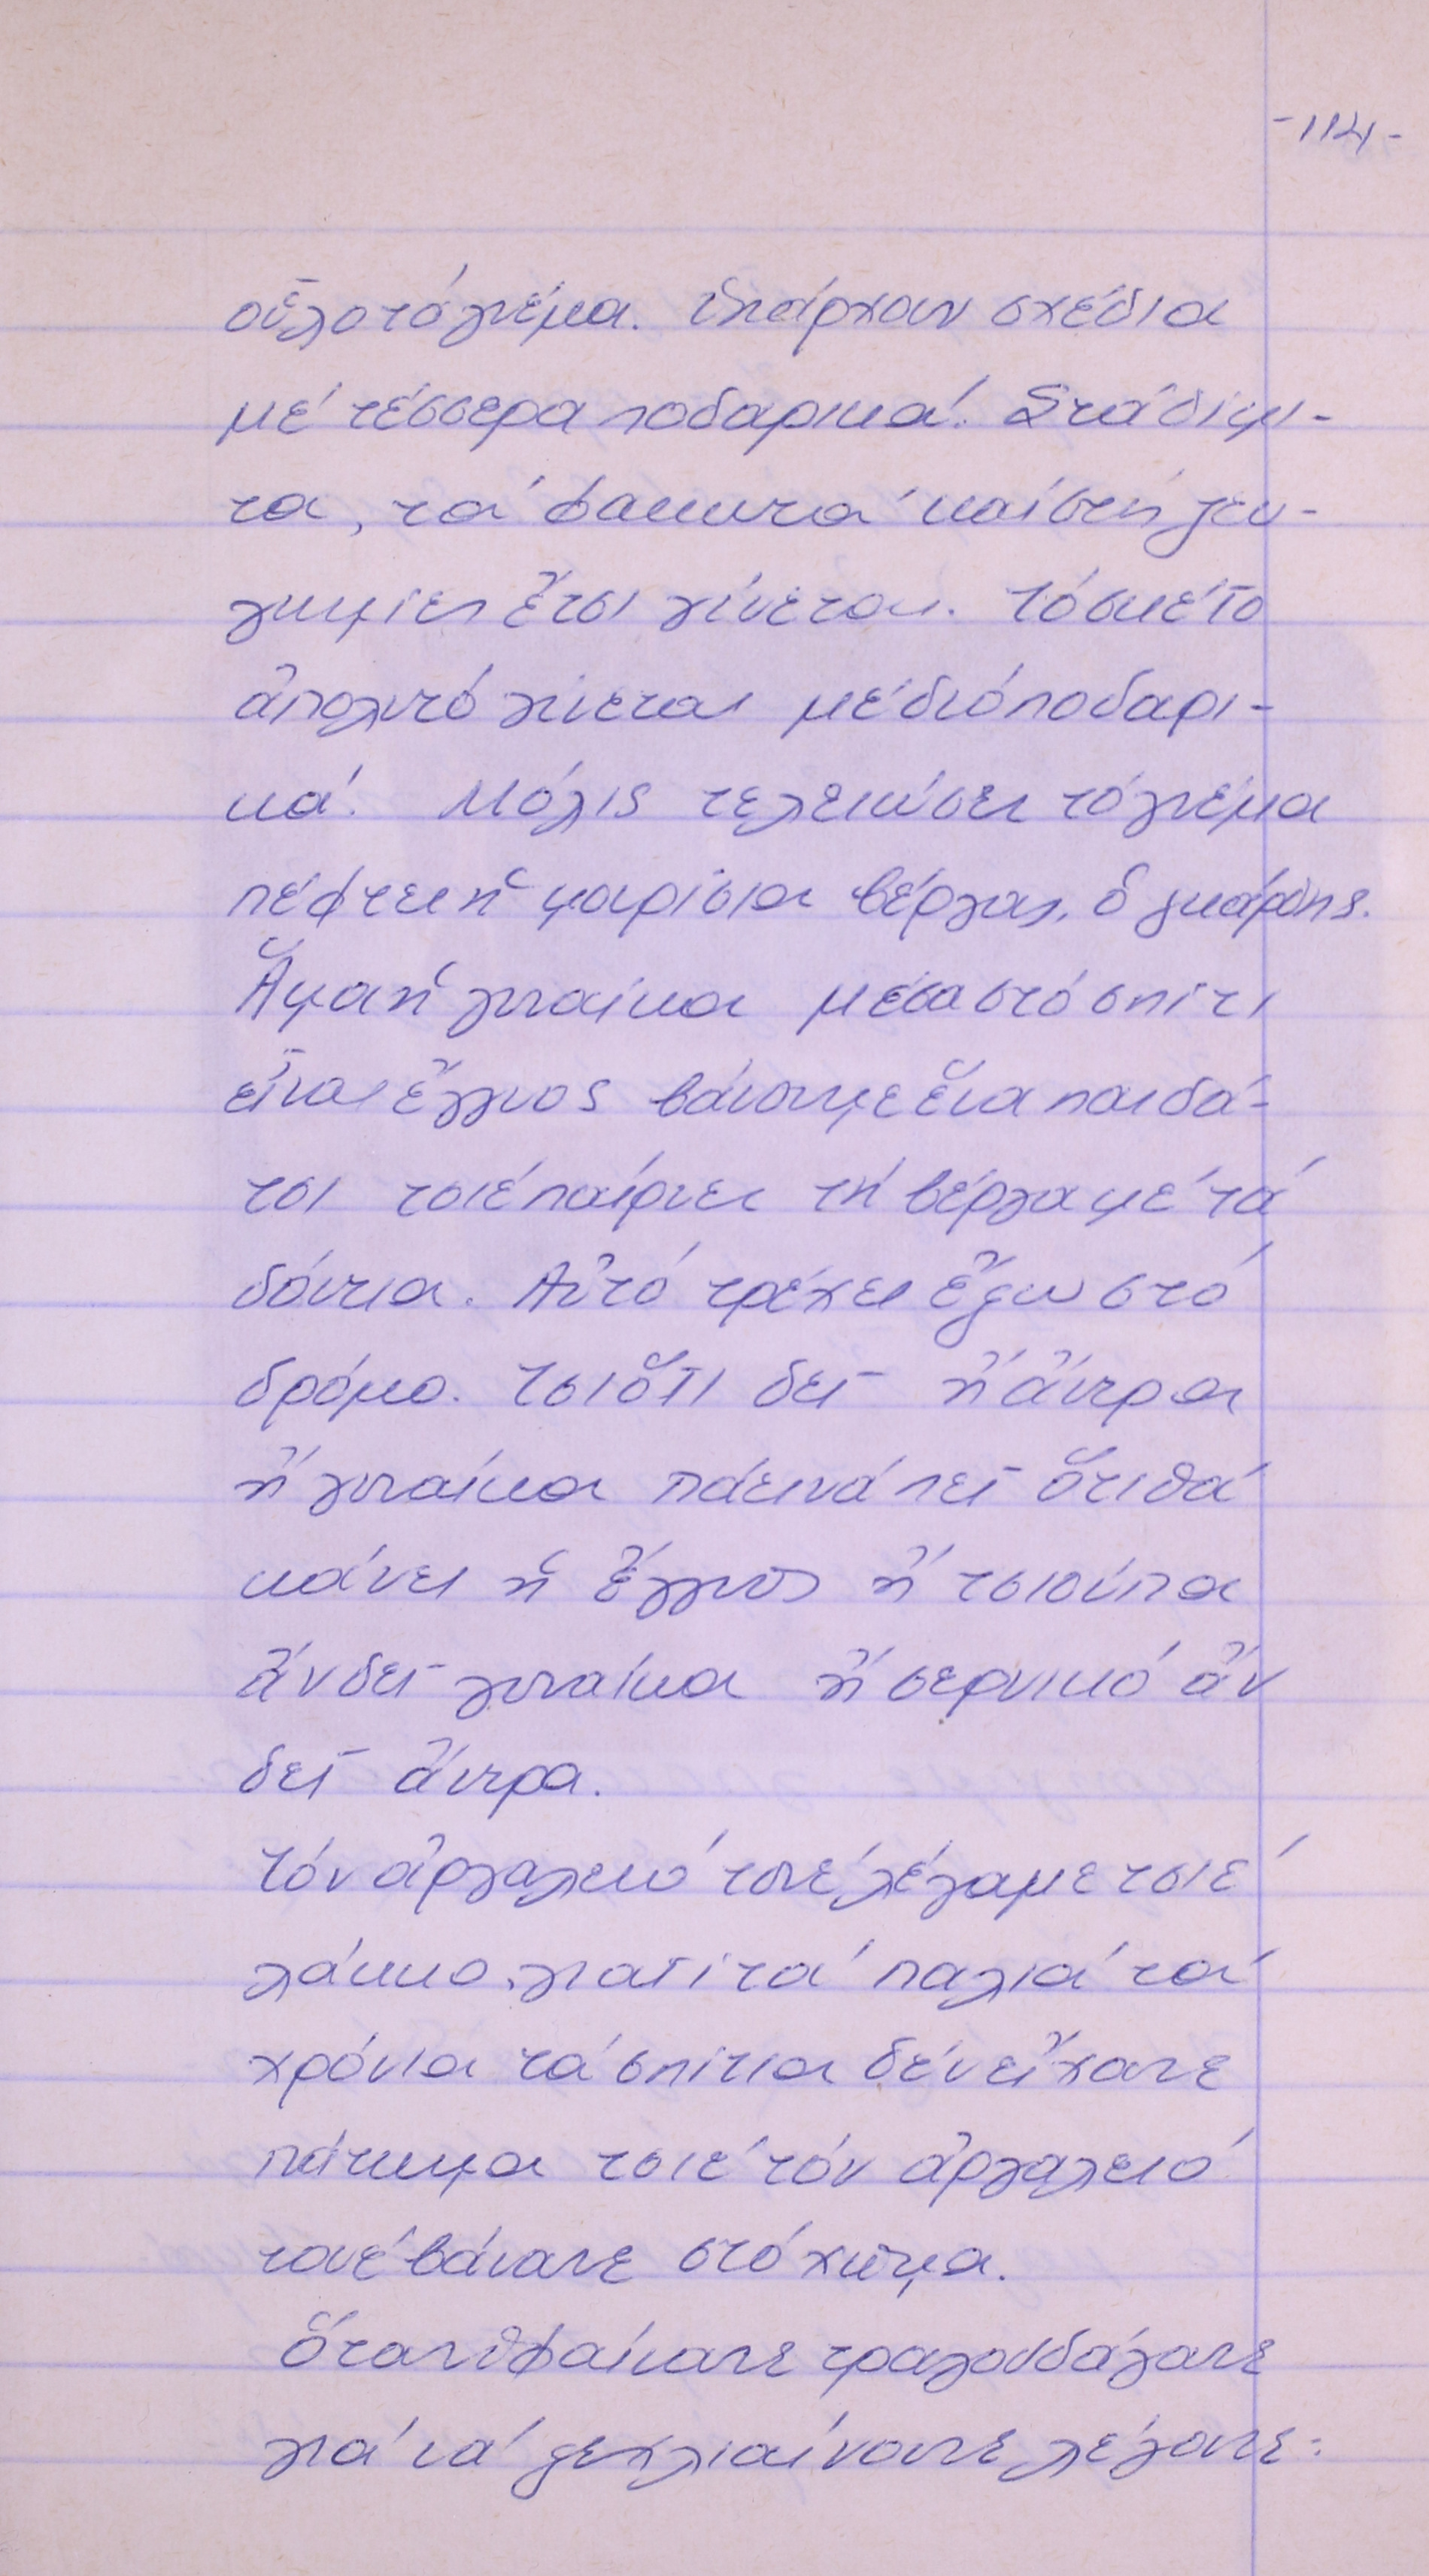 -114-
οὗλο τό γνέμα. Ὑπάρχουν σχέδια
μέ τέσσερα ποδαρικά. Στά δίμι-
τα, τά φακωτά καί στή ζευ-
γκμιές ἔτσι γίνεται. Τό σκέτο
ἀπολυτό γίνεται μέ διό ποδαρι-
κά. Μόλις τελειώσει τό γνέμα
πέφτει ἡ μαρίσια βέργα, ὁ γκάρδης.
Ἅμα ἡ γυναίκα μέσα στό σπίτι
εἶναι ἔγγυος βάνουμε ἕνα παιδά-
τσι τσιέ παίρνει τή βέργα μέ τά
δόντια. Αὐτό τρέχει ἔξω στό
δρόμο. Τσι ὅτι δεῖ ἤ ἄντρα
ἤ γυναίκα πάει νά πεῖ ὅτι θά
κάνει ἡ ἔγγυος ἤ τσιούπα
ἄν δεῖ γυναίκα ἤ σερνικό ἄν
δεῖ ἄντρα.
Τόν ἀργαλειό τονέ λέγαμε τσιέ
λάκκο, γιατί τά παλιά τά
χρόνια τά σπίτια δέν εἴχανε
πάτωμα τσιέ τόν ἀργαλειό
τονέ βάνανε στό χῶμα.
Ὅταν ὑφαίνανε τραγουδάγανε
γιά νά ξεχλιαίνουνε λέγανε: